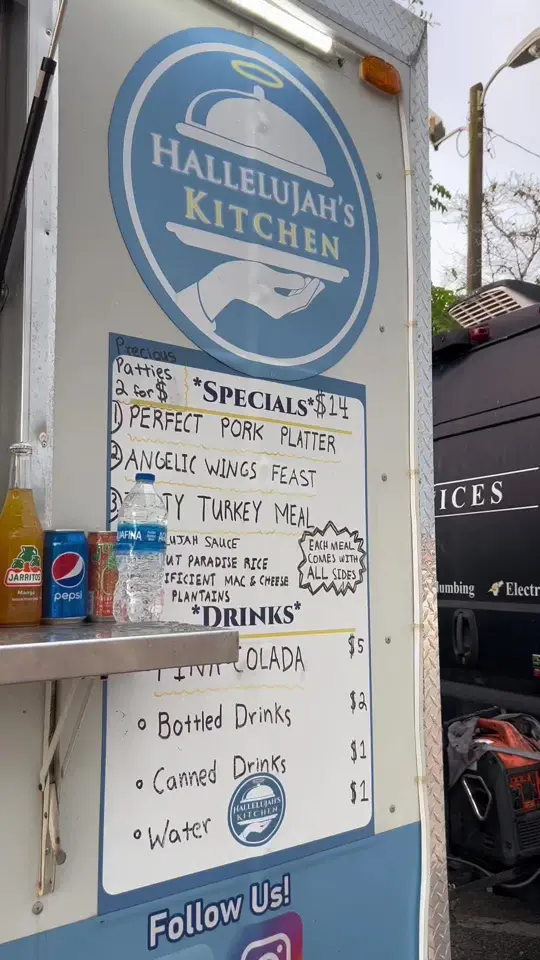 HALLELUJAH'S
KITCHEN
Precious
Patties
2 for $
*SPECIALS* $14
1) PERFECT PORK PLATTER
2) ANGELIC WINGS FEAST
3) TY TURKEY MEAL
UJAH SAUCE
UT PARADISE RICE
IFICIENT MAC & CHEESE
PLANTAINS
EACH MEAL
COMES WITH
ALL SIDES
*DRINKS*
PINA COLADA $5
Bottled Drinks $2
Canned Drinks $1
Water $1
HALLELUJAH'S
KITCHEN
Follow Us!
JARRITOS
Mango
pepsi
AFINA
ICES
lumbing Electr